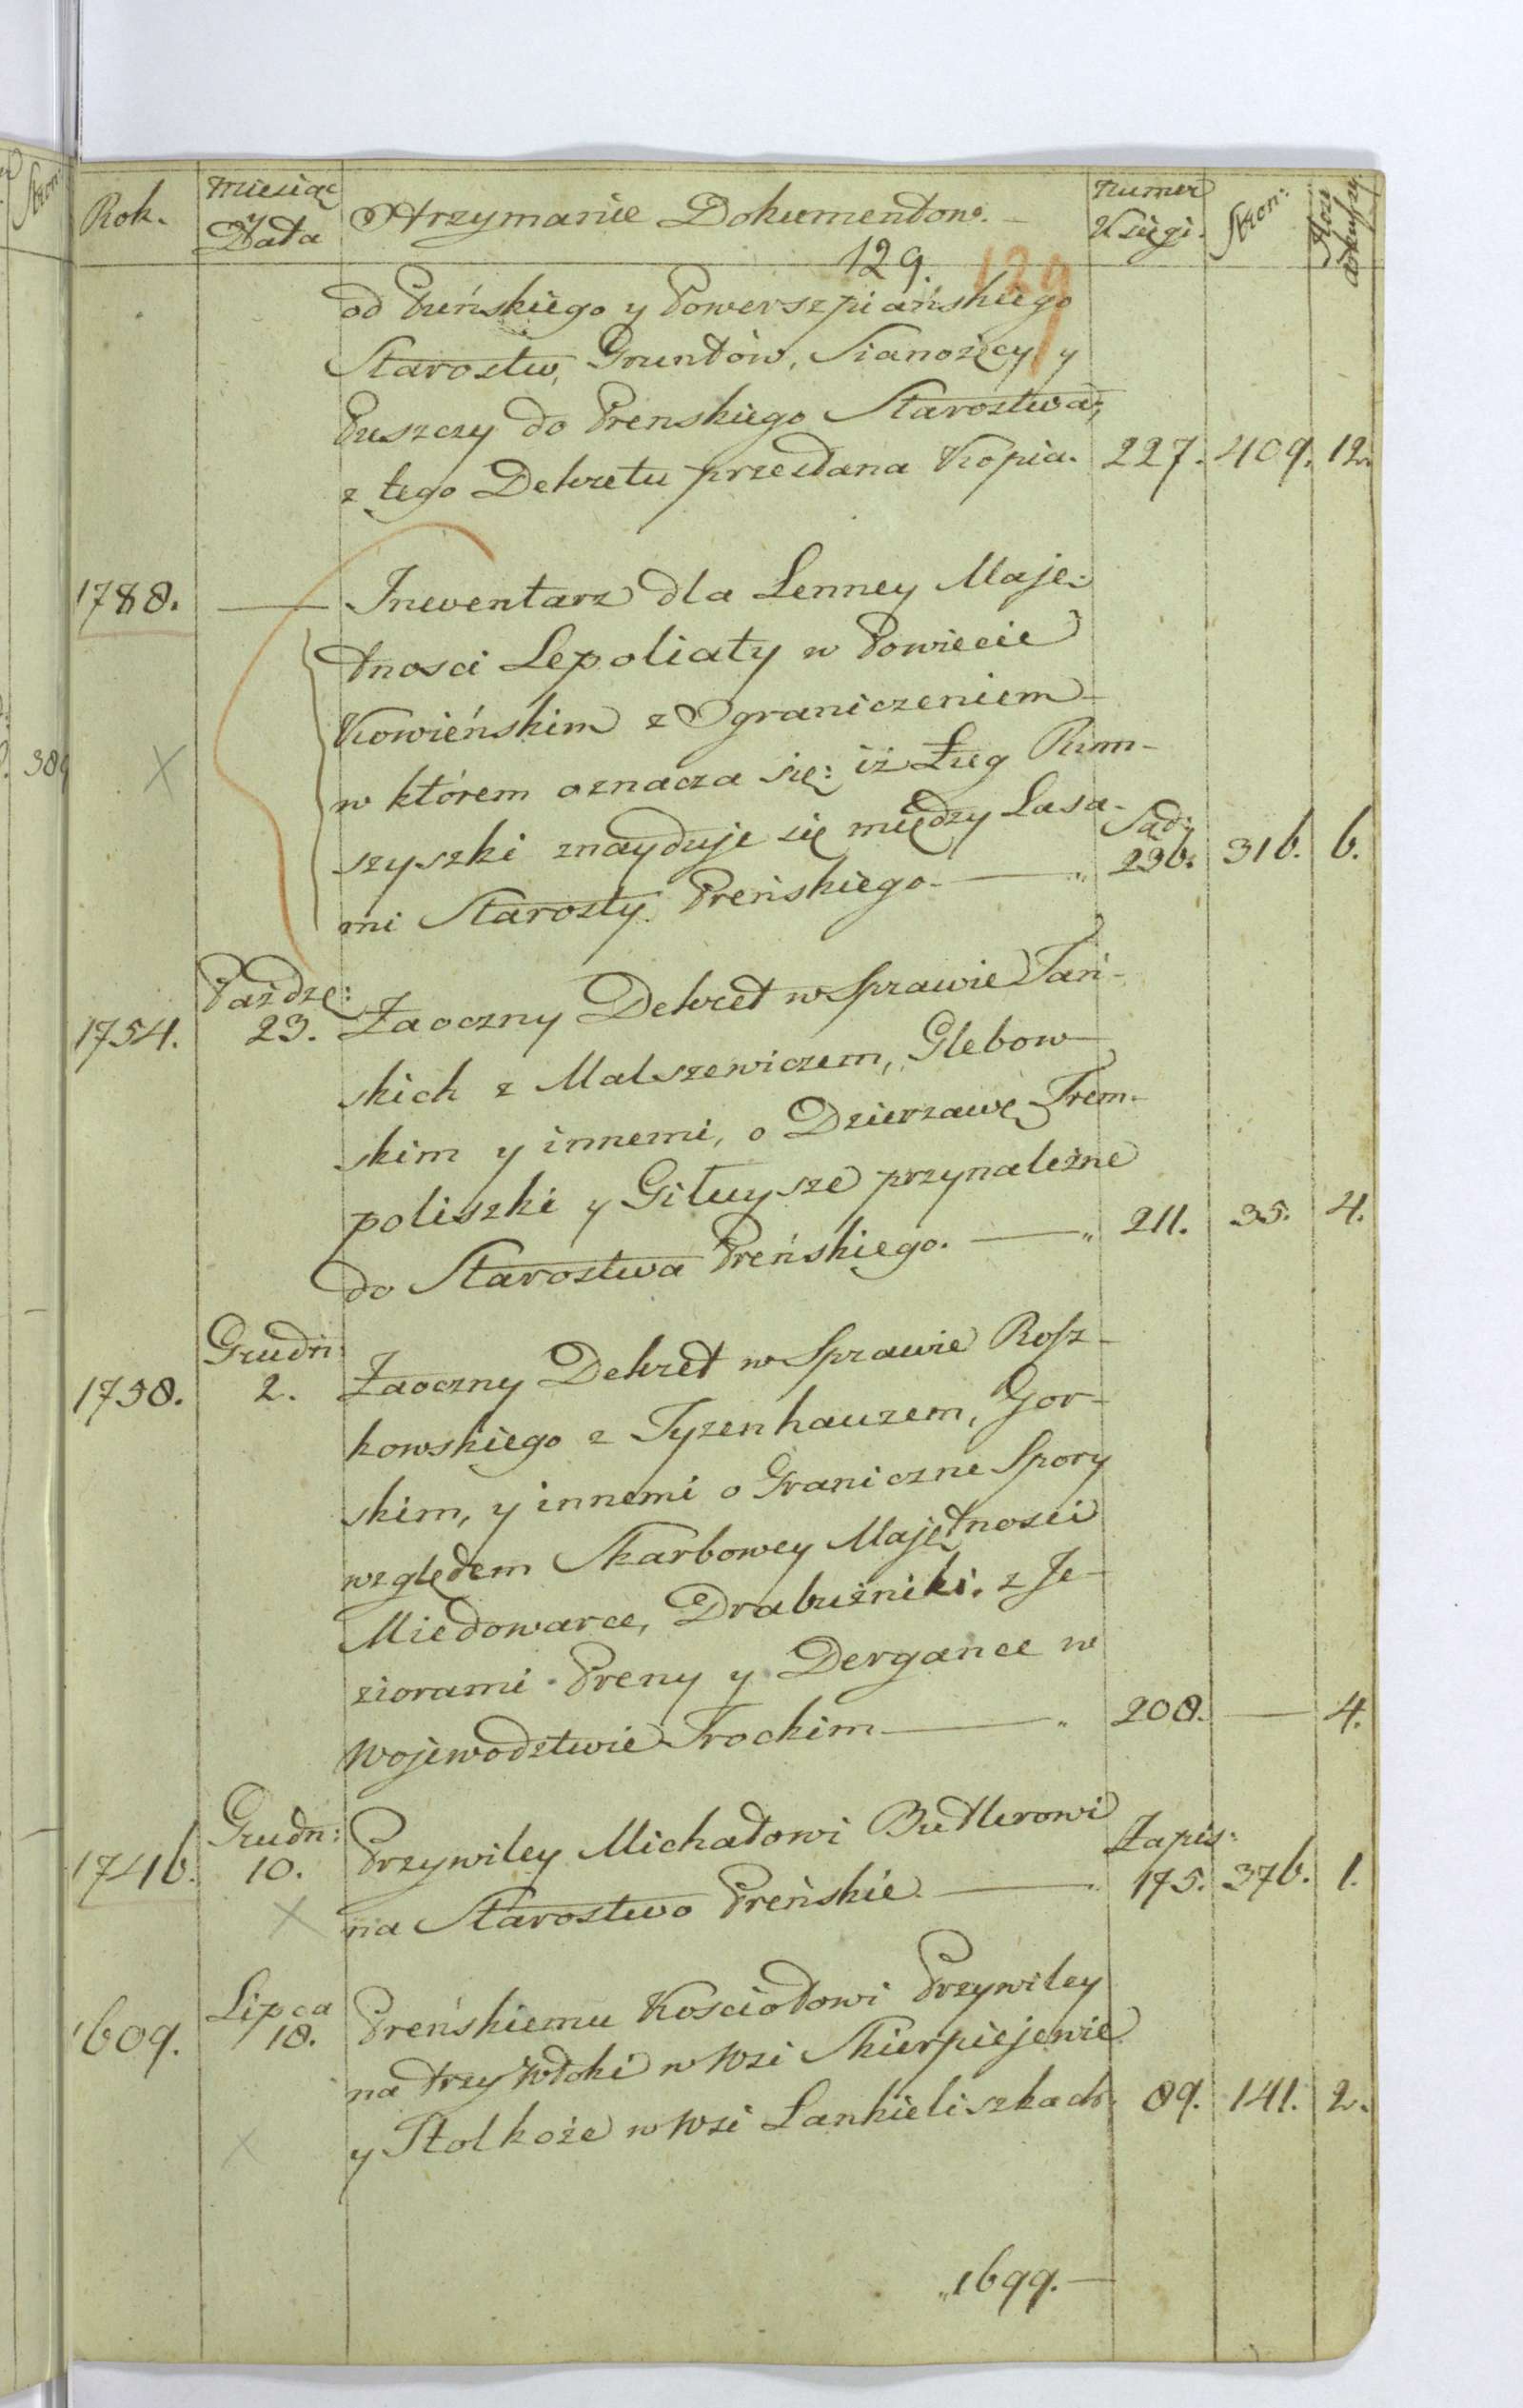 Rok. Miesiąc y Data Otrzymanie Dokumentow. Numer Księgi. Stron: Ilość arkuszy
129. 129
od Preńskiego y Powerszpiańskiego
Starostw, Gruntów, Sianożęcy y
Puszczy do Prenskiego Starostwa;
z tego Dekretu przedana Kopia. 227. 409. 12.
1788. — Inwentarz dla Lenney Maję:
tnosci Lepoliaty w Powiecie
Kowieńskim z Ograniczeniem
w którem oznacza się: iż Ług Rum-
szyszki znayduje się między Lasa-
mi Starosty Preńskiego. — „ Sąd: 236. 316. 6.
1754. Paźdze: 23. Zaoczny Dekret w Sprawie Tań-
skich z Malszewiczem, Glebow-
skim y innemi, o Dzierzawę Trem-
poliszki y Giłuysze przynależne
do Starostwa Preńskiego. — „ 211. 35. 4.
1758. Grudn: 2. Zaoczny Dekret w Sprawie Rosz-
kowskiego z Tyzenhauzem, Gor-
skim, y innemi o Graniczne Spory
względem Skarbowey Majętnosci
Miedowarce, Drabużniki. z Je-
ziorami Preny y Dergance w
Wojewodztwie Trockim — „ 208. — 4.
1746. Grudn: 10. Przywiley Michałowi Butlerowi
na Starostwo Preńskie. — „ Zapis: 175. 376. 1.
1609. Lipca 18. Preńskiemu Kosciołowi Przywiley
na trzy Włoki w Wsi Skierpiejewie
y Stolkoże w Wsi Lankieliszkach. 89. 141. 2.
„1699. —
389